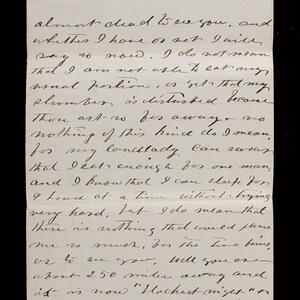 almost dead to see you, and
whether I have or not I will
say so now. I do not mean
that I am not able to eat my
usual portion, or yet that my
slumber is disturbed because
thou art so far away - no
nothing of this kind do I mean,
for my landlady can swear
that I eat enough for one man,
and I know that I can sleep for
9 hours at a time without trying
very hard, but I do mean that
there is nothing that would please
me so much, for the time being,
as to see you. Well you are
about 250 miles away and
it is now "blackest night" &